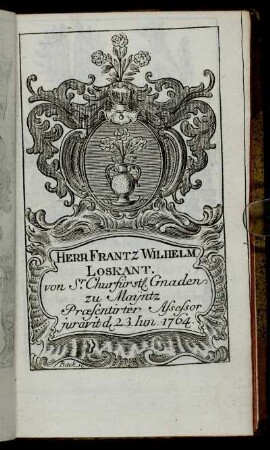 HERR FRANTZ WILHELM
LOSKANT.
von Sr. Churfürstl. Gnaden
zu Maÿntz
Præsentirter Assessor
juravit d. 23. Iun. 1764.
Back. sc.